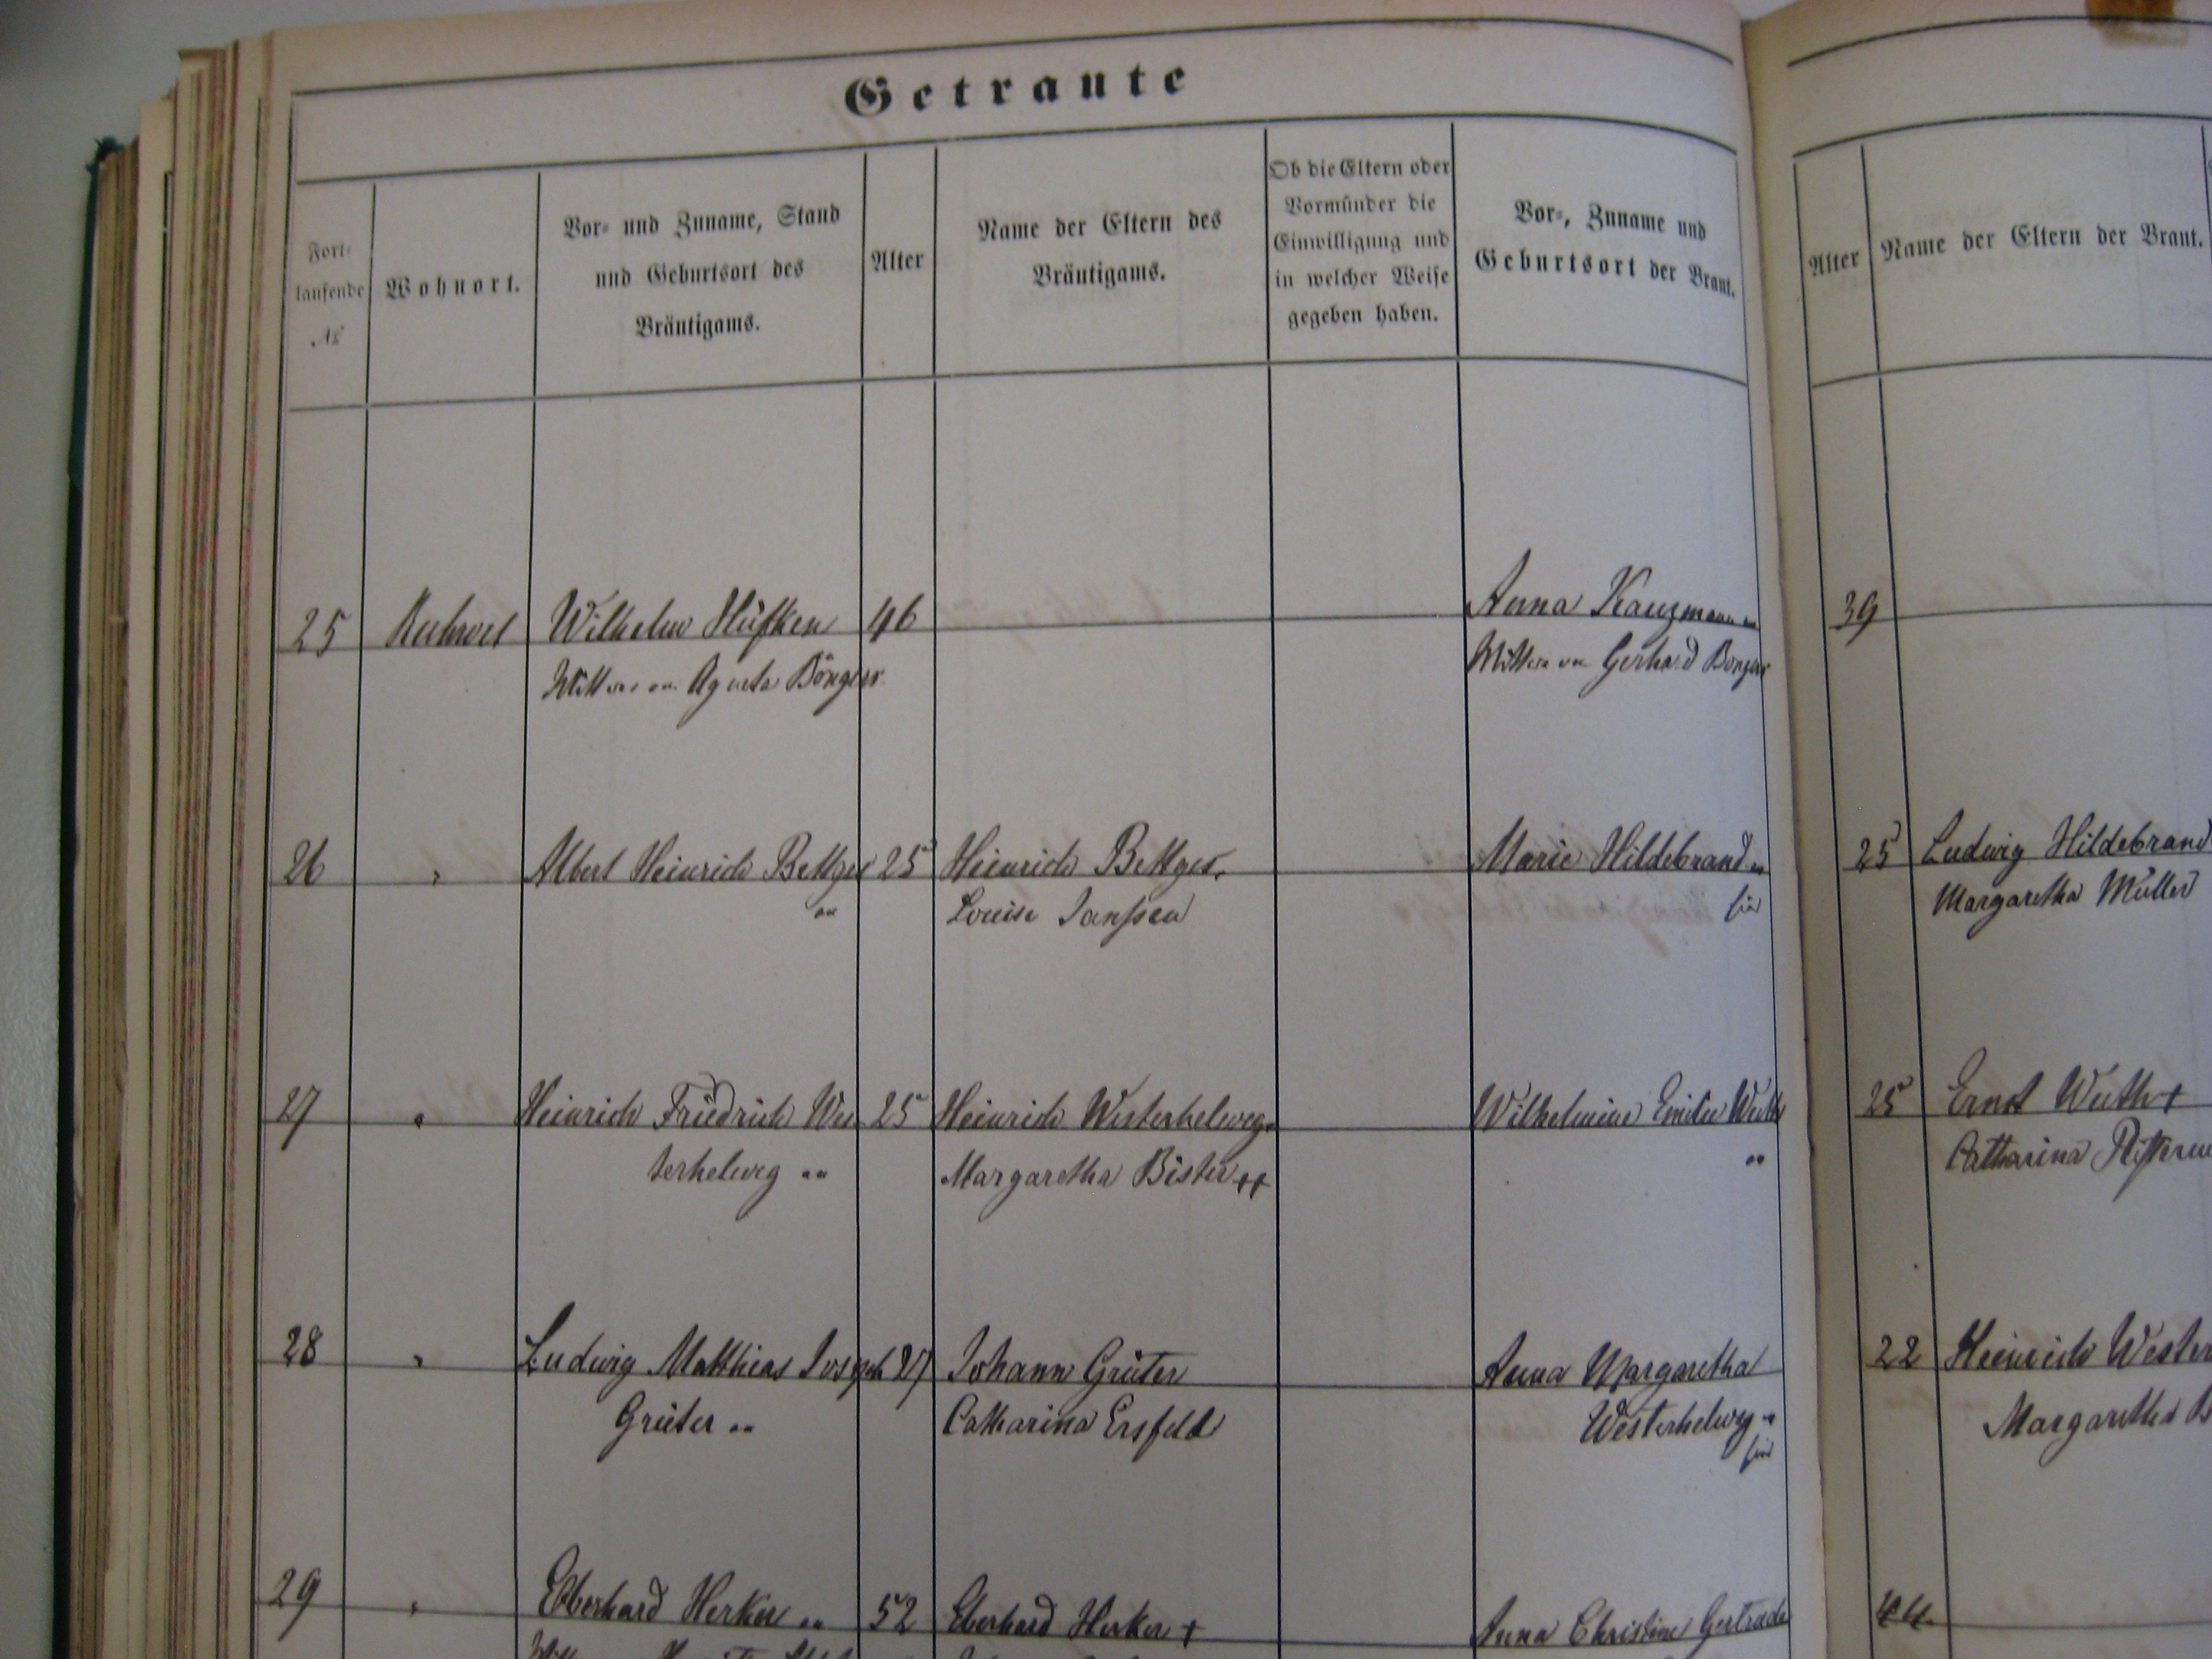 Getraute
Fort-
laufende
№
Wohnort.
Vor- und Zuname, Stand
und Geburtsort des
Bräutigams.
Alter
Name der Eltern des
Bräutigams.
Ob die Eltern oder
Vormünder die
Einwilligung und
in welcher Weise
gegeben haben.
Vor-, Zuname und
Geburtsort der Braut.
Alter
Name der Eltern der Braut.
25
Wilhelm Hüfken
46
Anna
39
Agneta Börgers
Gerhard
26
Albert Heinrich Bettges
25
Heinrich Bettges.
Marie Hildebrand
25
Ludwig Hildebrand
Louise Janssen
Margaretha Müller
27
Heinrich Friedrich Wes
25
Heinrich Westerhelweg
Wilhelmine Emilie
25
Ernst Wuth +
terhelweg
Margaretha Bister ++
Catharina
28
Ludwig Matthias Joseph
27
Johann Grüter
Anna Margaretha
22
Heinrich Wester
Grüter
Catharina Ersfeld
Westerhelweg
Margaretha B
29
Eberhard Herker
52
Eberhard Herker +
Anna Christine Gertrude
44